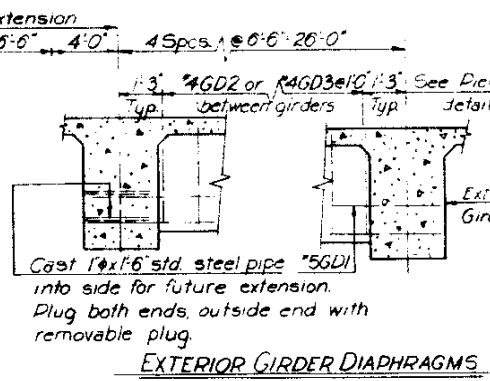 xtension
6'-6" 4'-0" 4 Spcs. @ 6'-6"=26'-0"
1'-3" #4GD2 or #4GD3@1'-0" 1'-3" See Pie
Typ. between girders Typ. detai
Ext
Gir
Cast 1"ϕx1'-6" std. steel pipe #5GD1
into side for future extension.
Plug both ends, outside end with
removable plug.
EXTERIOR GIRDER DIAPHRAGMS